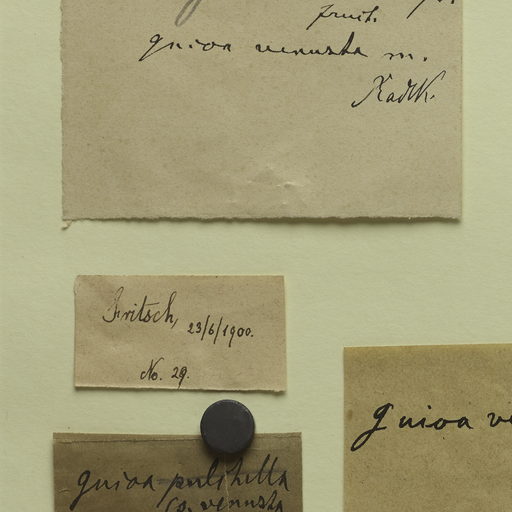 fruit.
guioa venusta m.
Radlk.
Fritsch, 23/6/1900.
No. 29.
guioa
guioa pulchella
venusta